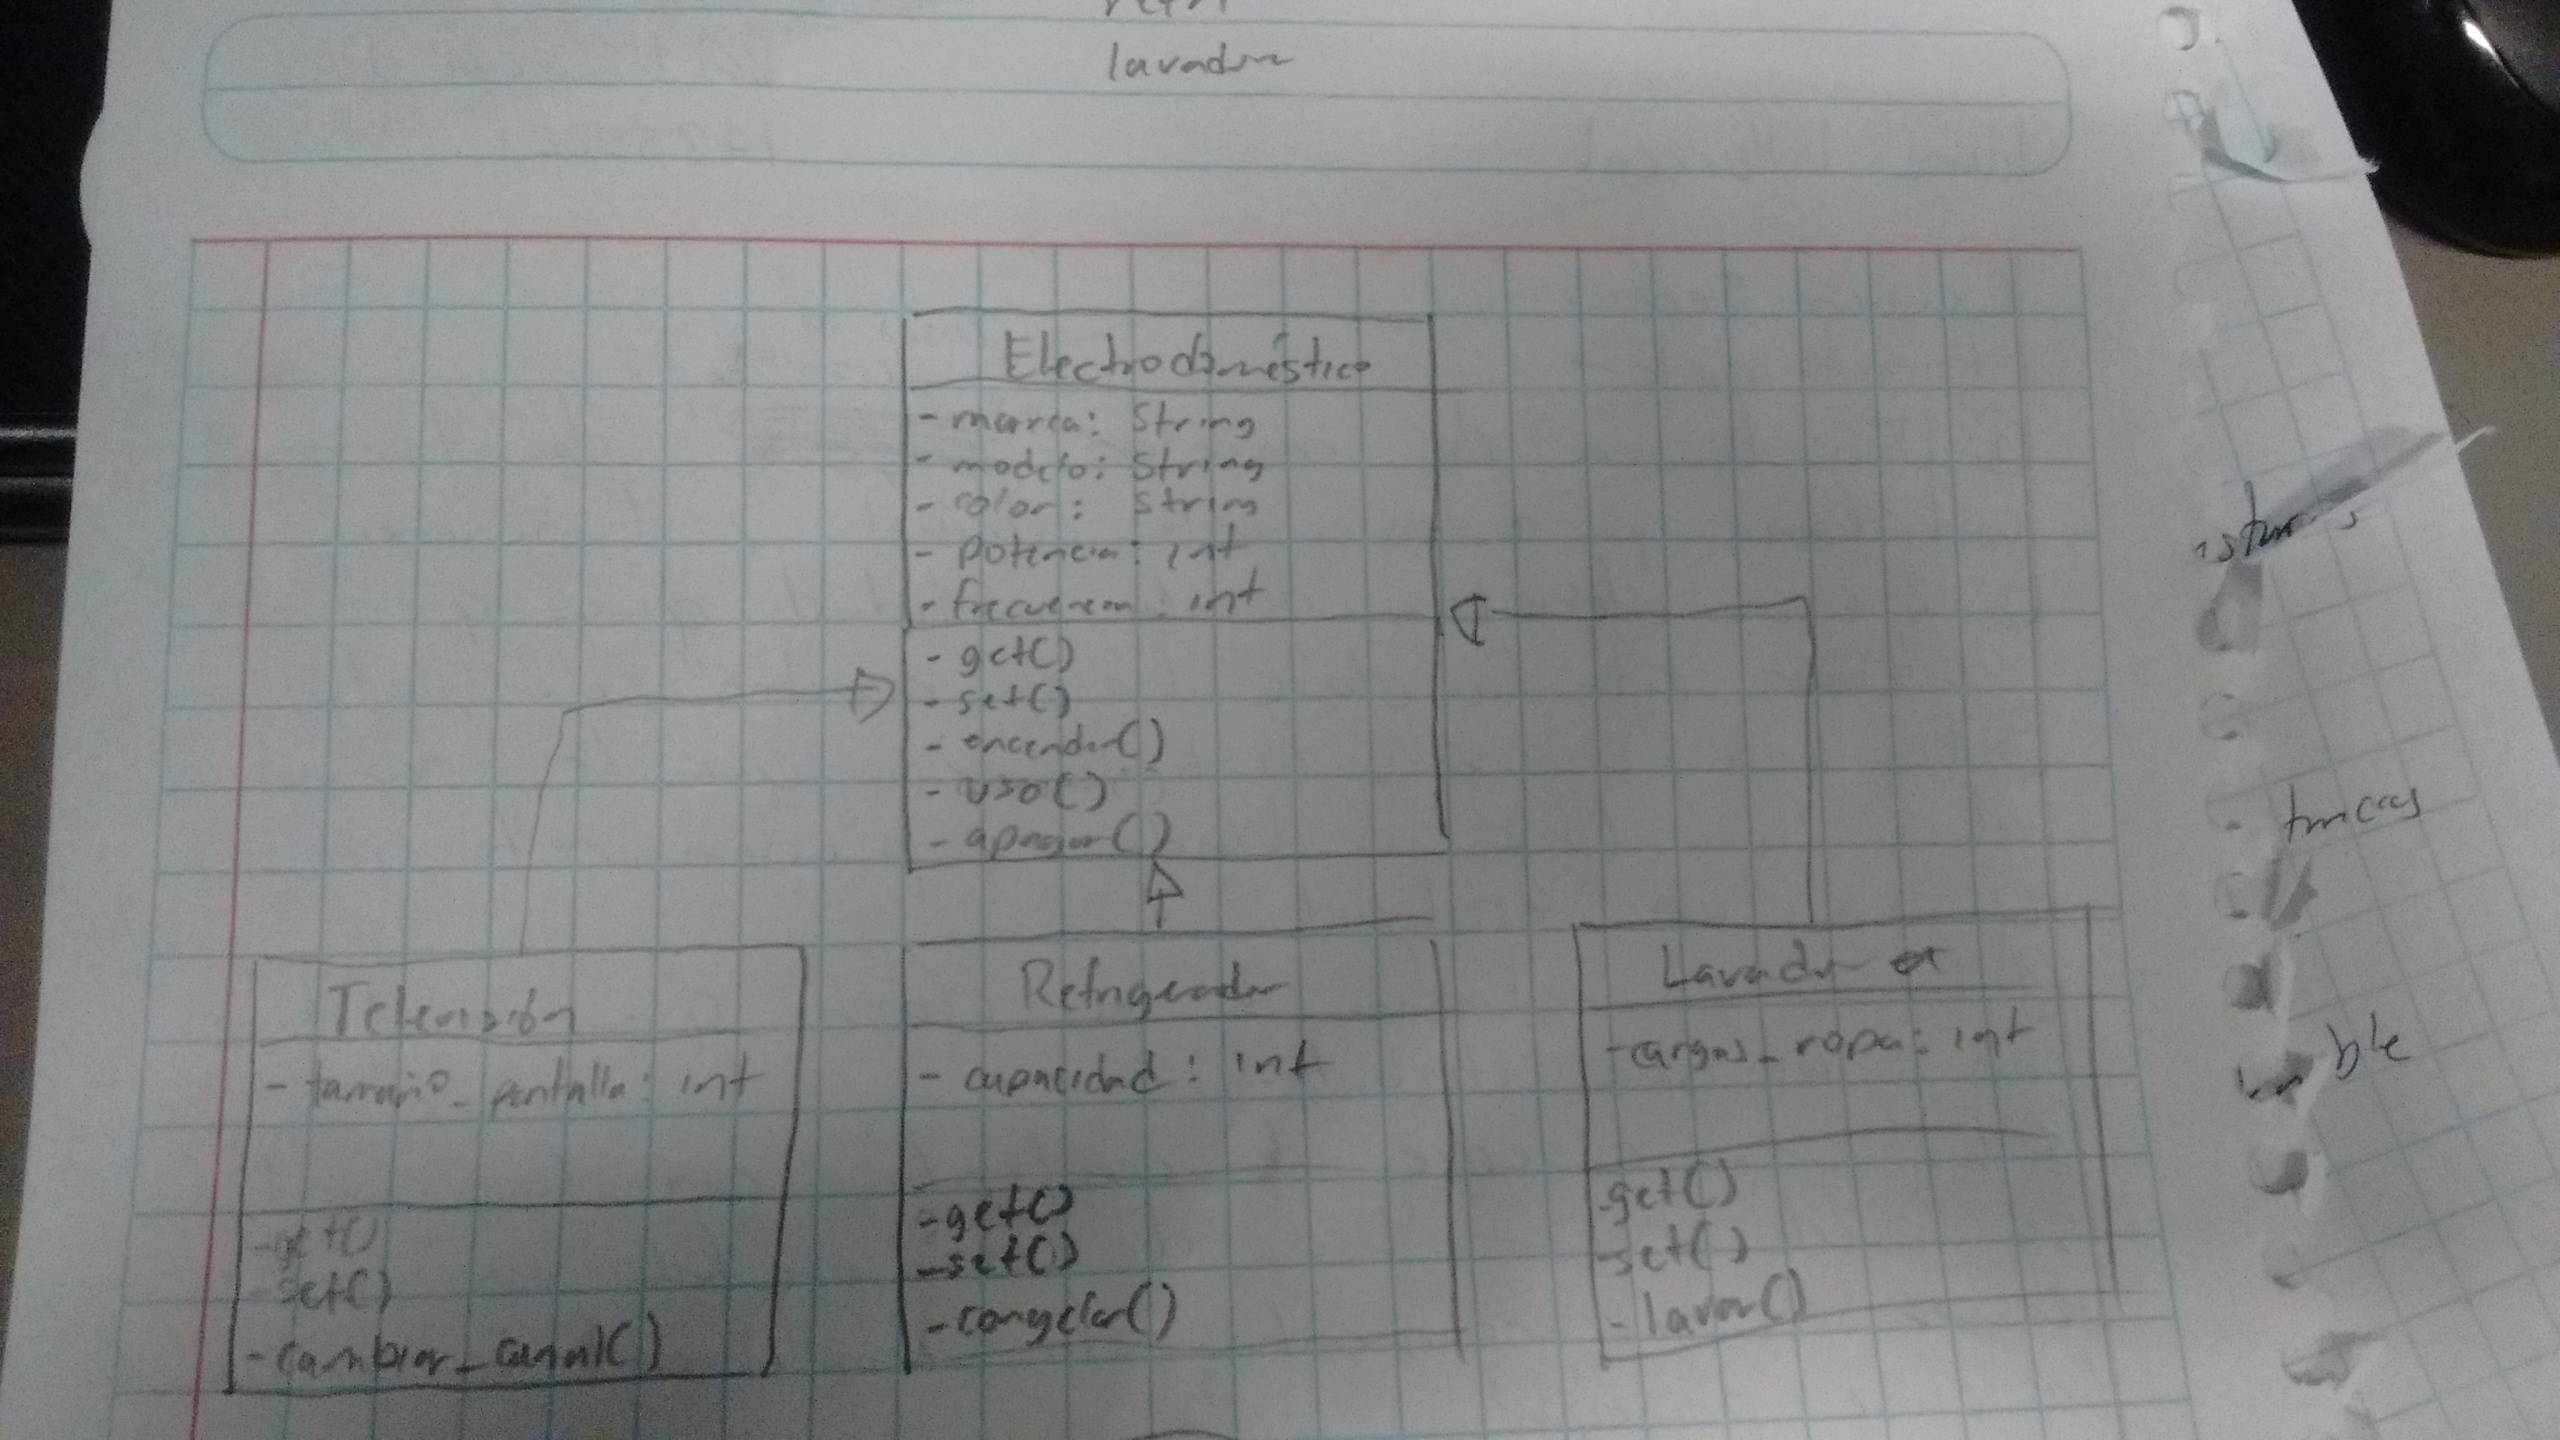 lavadora
Electrodoméstico
- marca: String
- modelo: String
- color: String
- potencia: int
- frecuencia: int
- get()
- set()
- encender()
- uso()
- apagar()
Televisión
- tamaño_pantalla: int
- get()
- set()
- cambiar_canal()
Refrigerador
- capacidad: int
- get()
- set()
- congelar()
Lavadora
- cargas_ropa: int
- get()
- set()
- lavar()
ble